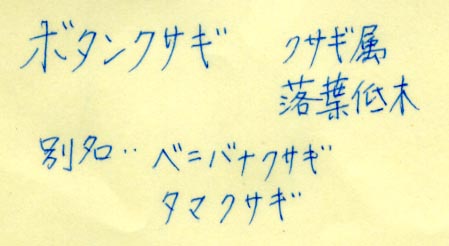 ボタンクサギ クサギ属
落葉低木
別名‥ベニバナクサギ
タマクサギ